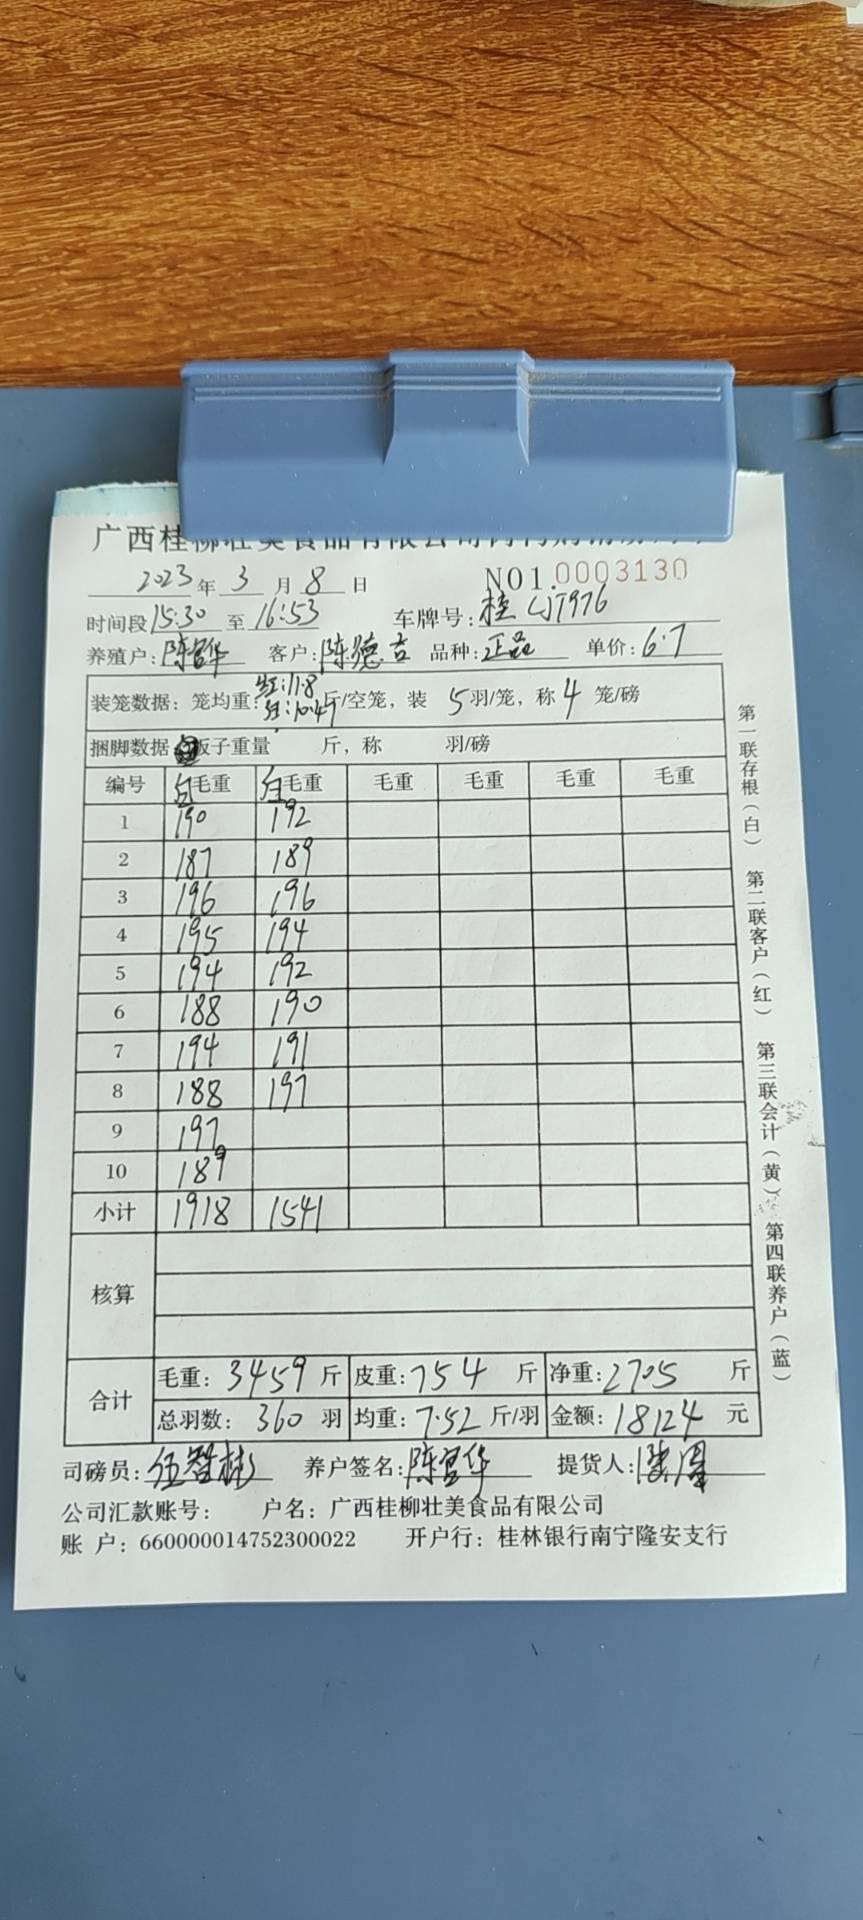 广西桂柳壮美食品有限公司
2023年3月8日 NO1.0003130
时间段15:30至16:53 车牌号:桂CJT976
养殖户:陈官华 客户:陈德吉 品种:正品 单价:6.7
装笼数据:笼均重: 11.8 10.4斤/空笼,装 5羽/笼,称4笼/磅
捆脚数据 板子重量 斤,称 羽/磅
编号 毛重 毛重 毛重 毛重 毛重 毛重
1 190 192
2 187 189
3 196 196
4 195 194
5 194 192
6 188 190
7 194 191
8 188 197
9 197
10 189
小计 1918 1541
核算
合计 毛重:3459斤 皮重:754斤 净重:2705斤
总羽数:360羽 均重:7.52斤/羽 金额:18124元
司磅员:伍智彬 养户签名:陈官华 提货人:
公司汇款账号: 户名:广西桂柳壮美食品有限公司
账 户:660000014752300022 开户行:桂林银行南宁隆安支行
第一联存根(白) 第二联客户(红) 第三联会计(黄) 第四联养户(蓝)